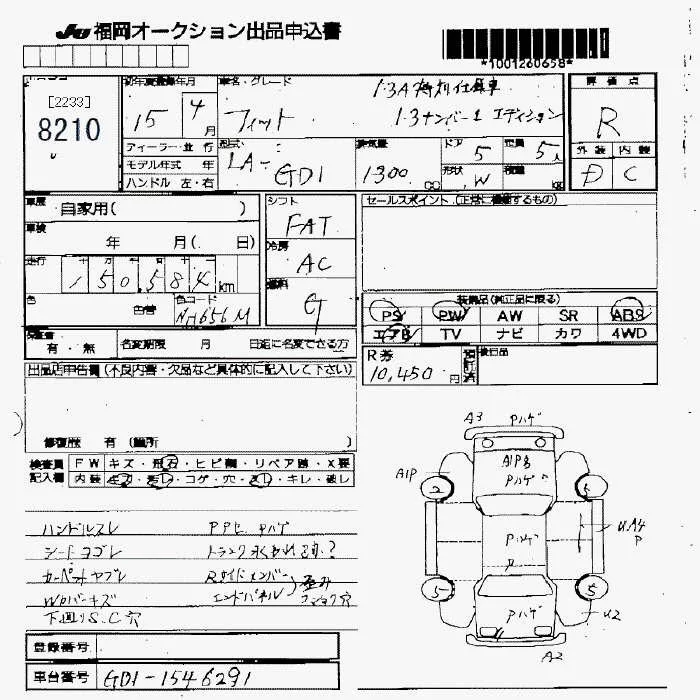 JU 福岡オークション出品申込書
*1001260658*
[2233]
8210
初年度登録年月
15 4月
車名・グレード
フィット
1.3A 特別仕様車
1.3ナンバー1 エディション
評価点
R
外装 内装
D C
ディーラー・並行
モデル年式 年
ハンドル 左・右
型式
LA-GD1
排気量
1300 cc
ドア 5
形状 W
定員 5人
積載 kg
車歴 自家用( )
車検 年 月( 日)
走行 十 万 千
150,584 km
色 色替
色コード
NH656M
シフト
FAT
冷房
AC
燃料
G
セールスポイント (正常に機能するもの)
装備品(純正品に限る)
PS PW AW SR ABS
エアB TV ナビ カワ 4WD
保証書 有・無
名変期限 月 日迄に名変できる方
R券
10,450円
預託済
後日品
出品店申告欄 (不良内容・欠品など具体的に記入して下さい)
修復歴 有 (箇所 )
検査員記入欄
FW キズ・飛石・ヒビ割・リペア跡・X要
内装 キズ・汚レ・コゲ・穴・・キレ・破レ
ハンドルスレ
シートヨゴレ
カーペットヤブレ
Wカバーキズ
下回りS.C穴
PPセ Pハゲ
トランク水もれ?
Rサイドメンバー
エンドパネル
歪み
A3 Pハゲ
A1P
Pハゲ
A1P
2 5
Pハゲ
UA4
P
P
5 5
Pハゲ
U2
A2
登録番号
車台番号 GD1-1546291